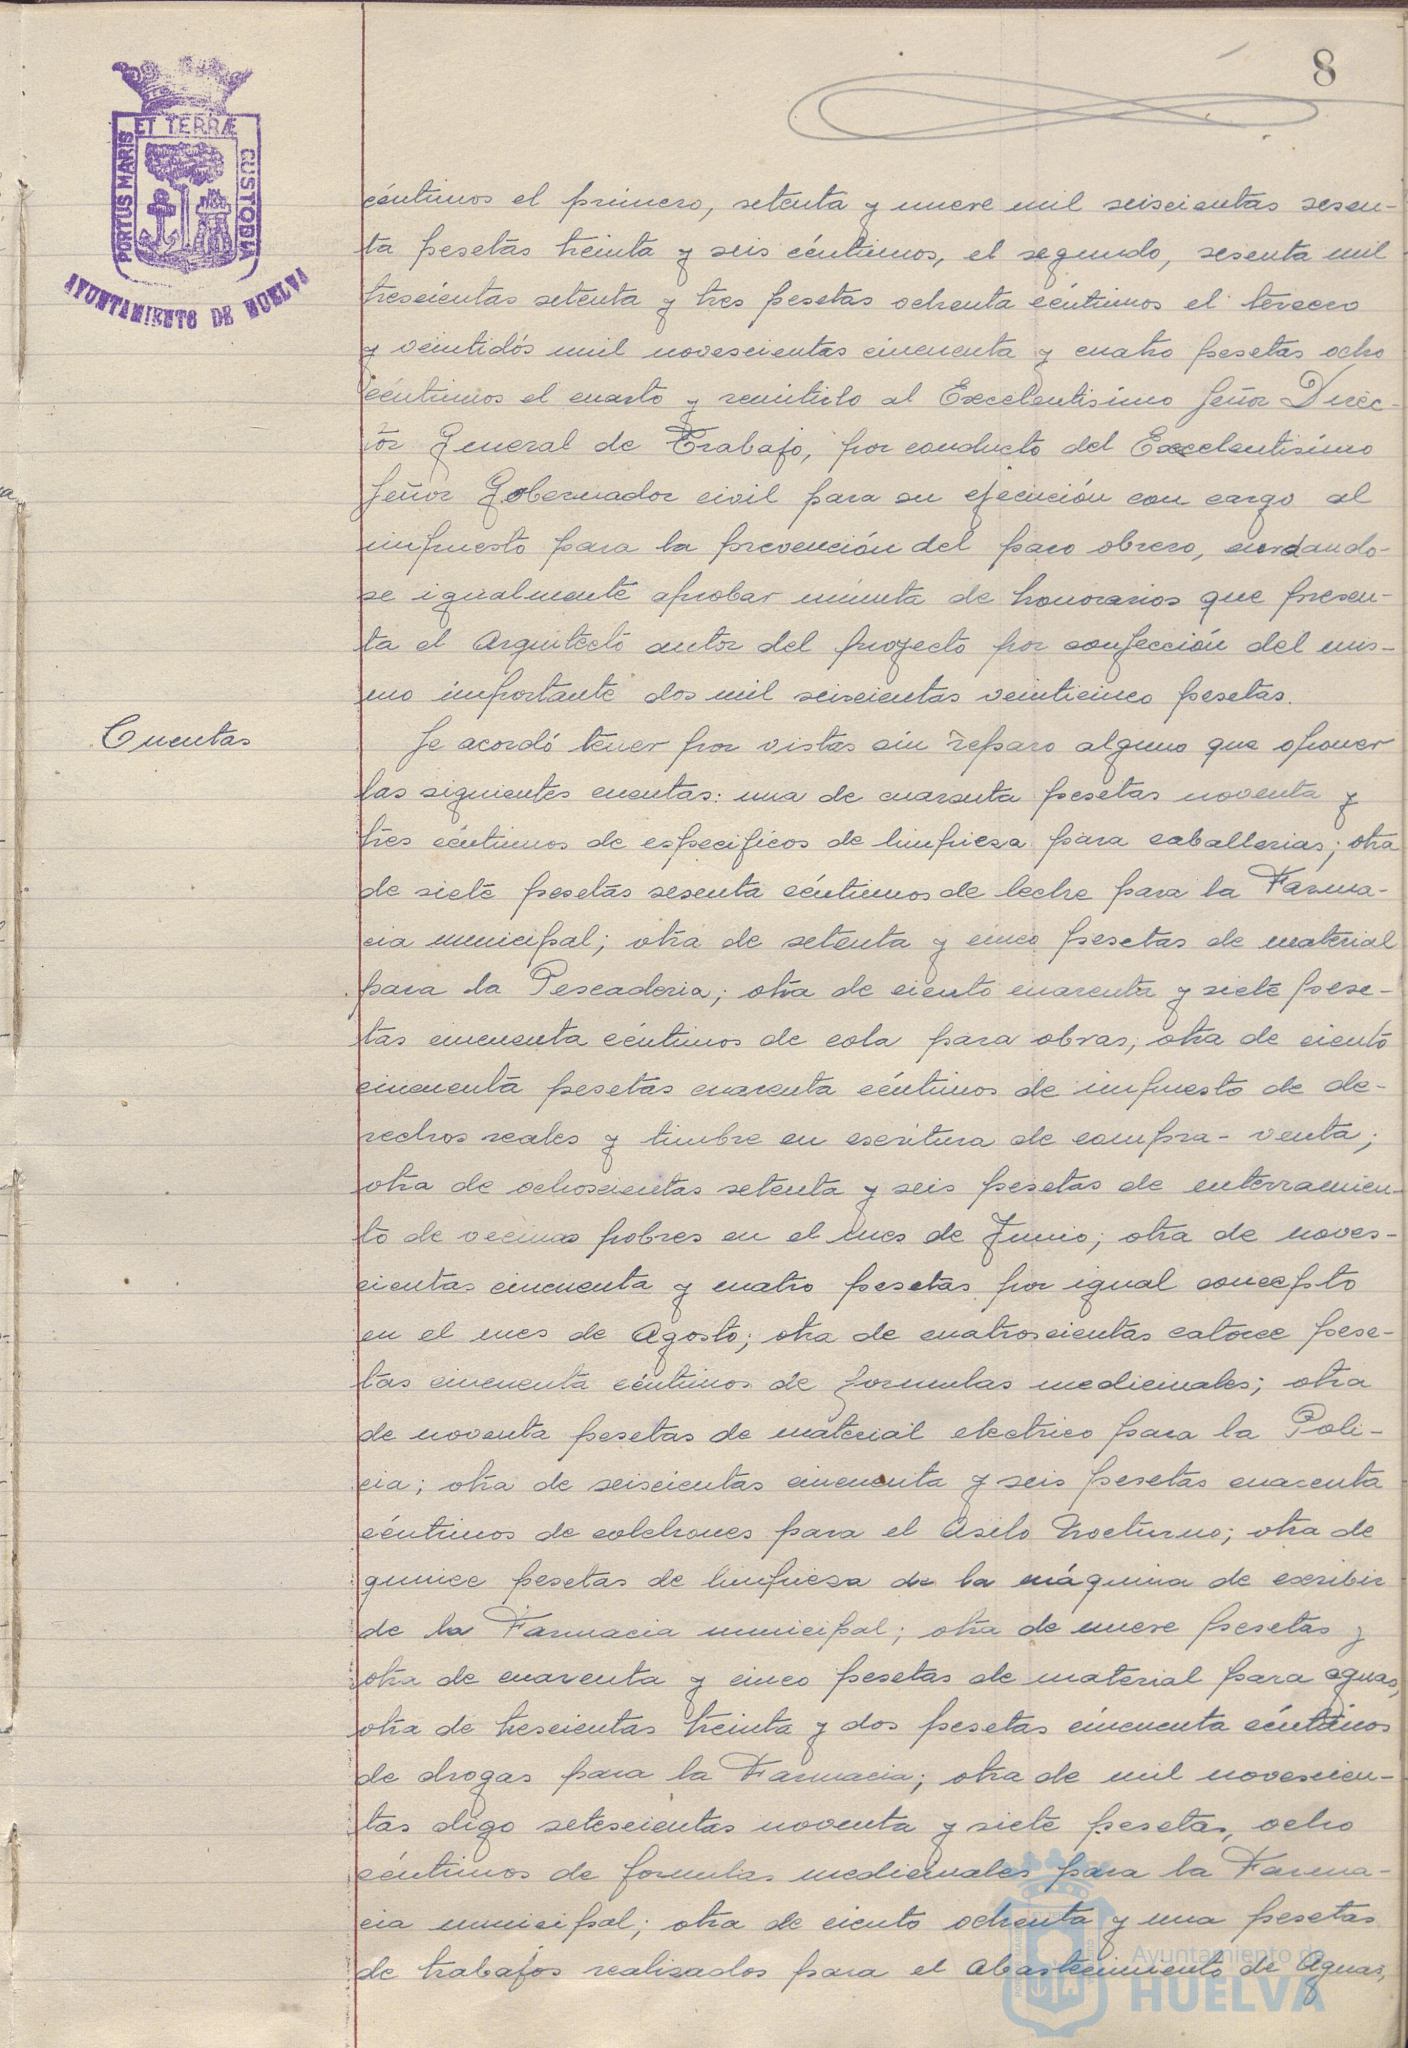 8
ET TERRÆ
PORTUS MARIS
CUSTODIA
AYUNTAMIENTO DE HUELVA
céntimos el primero, setenta y nueve mil seiscientas sesen-
ta pesetas treinta y seis céntimos, el segundo, sesenta mil
trescientas setenta y tres pesetas ochenta céntimos el tercero
y veintidós mil novescientas cincuenta y cuatro pesetas ocho
céntimos el cuarto y remitirlo al Excelentísimo Señor Direc-
tor General de Trabajo, por conducto del Excelentísimo
Señor Gobernador civil para su ejecución con cargo al
impuesto para la prevención del paro obrero, acordando-
se igualmente aprobar minuta de honorarios que presen-
ta el Arquitecto autor del proyecto por confección del mis-
mo importante dos mil seiscientas veinticinco pesetas.
Cuentas
Se acordó tener por vistas sin reparo alguno que oponer
las siguientes cuentas: una de cuarenta pesetas noventa y
tres céntimos de especificos de limpieza para caballerias; otra
de siete pesetas sesenta céntimos de leche para la Farma-
cia municipal; otra de setenta y cinco pesetas de material
para la Pescaderia; otra de ciento cuarenta y siete pese-
tas cincuenta céntimos de cola para obras; otra de ciento
cincuenta pesetas cuarenta céntimos de impuesto de de-
rechos reales y timbre en escritura de compra-venta;
otra de ochoscientas setenta y seis pesetas de enterramien-
to de vecinos pobres en el mes de Junio; otra de noves-
cientas cincuenta y cuatro pesetas por igual concepto
en el mes de Agosto; otra de cuatroscientas catorce pese-
tas cincuenta céntimos de formulas medicinales; otra
de noventa pesetas de material electrico para la Poli-
cia; otra de seiscientas cincuenta y seis pesetas cuarenta
céntimos de colchones para el Asilo Nocturno; otra de
quince pesetas de limpieza de la máquina de escribir
de la Farmacia municipal; otra de nueve pesetas y
otra de cuarenta y cinco pesetas de material para aguas,
otra de trescientas treinta y dos pesetas cincuenta céntimos
de drogas para la Farmacia; otra de mil novescien-
tas digo setescientas noventa y siete pesetas, ocho
céntimos de formulas medicinales para la Farma-
cia municipal; otra de ciento ochenta y una pesetas
de trabajos realizados para el Abastecimiento de Aguas,
Ayuntamiento de
HUELVA